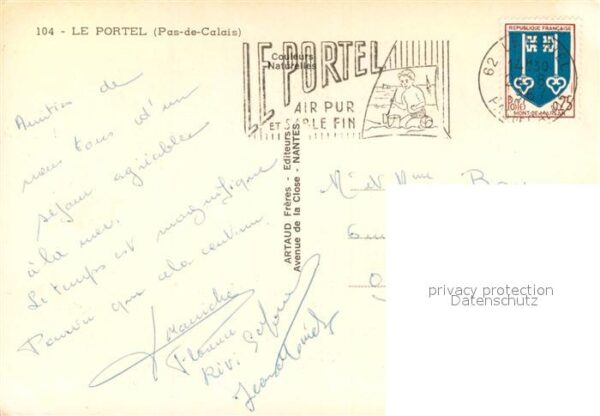 104 - LE PORTEL (Pas-de-Calais)
Couleurs
Naturelles
LE PORTEL
AIR PUR
ET SABLE FIN
62
14H30
REPUBLIQUE FRANÇAISE
POSTES
0,25
MONT-DE-MARSAN
ARTAUD Frères - Editeurs
Avenue de la Close - NANTES
Amitiés de
nous tous et d'un
séjour agréable
à la mer.
Le temps est magnifique
Pourvu que cela continu
M et Mme
privacy protection
Datenschutz